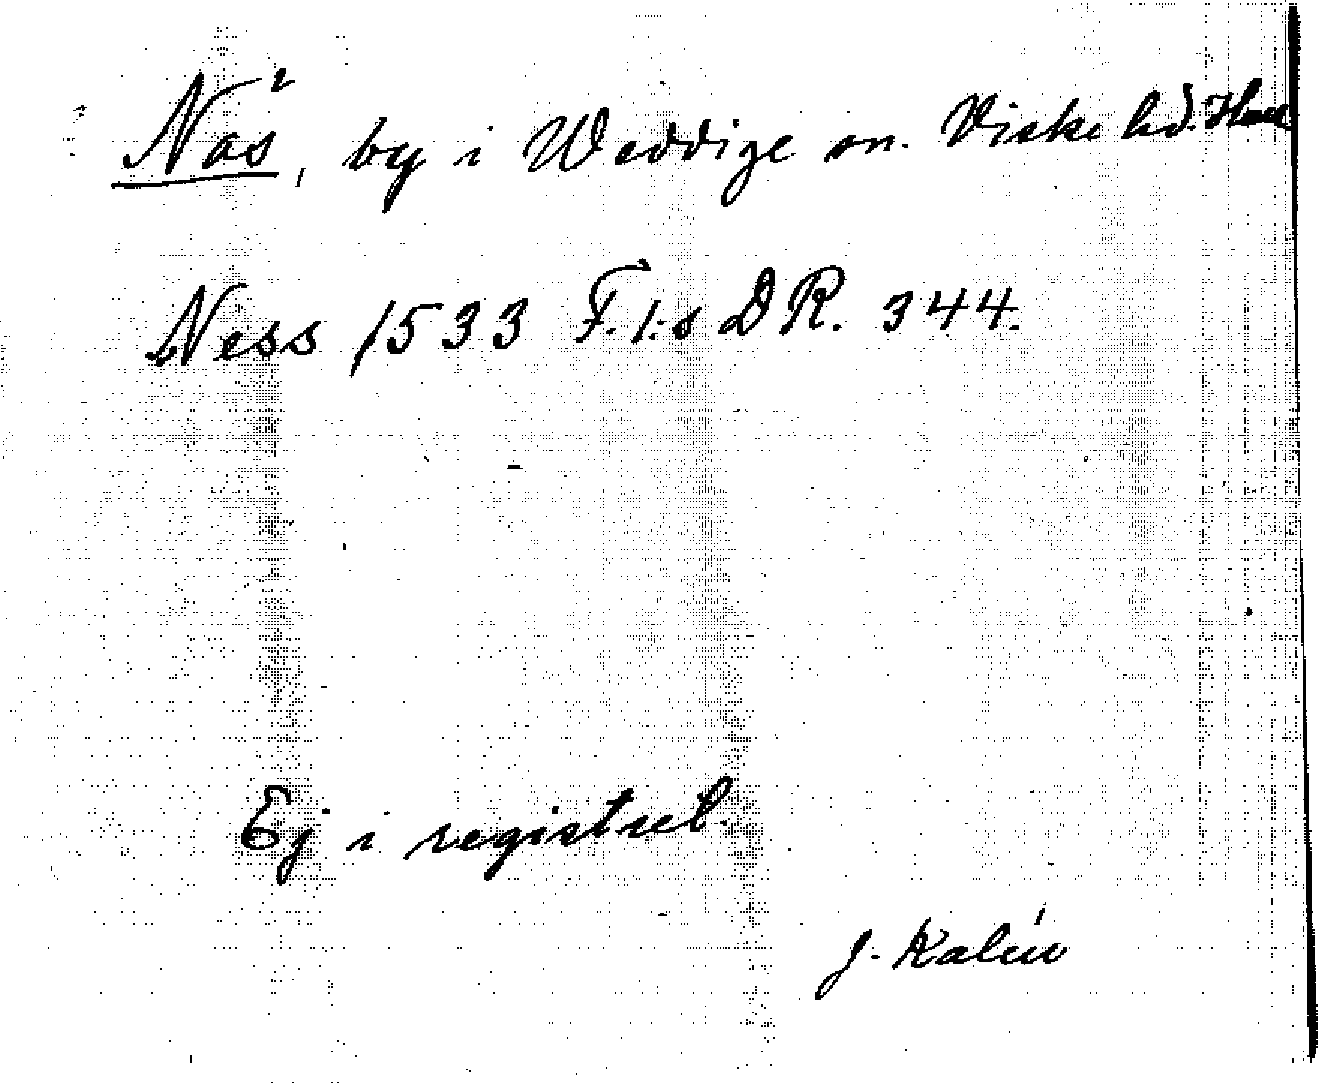 Näs, by i Weddige sn. Viske hd. Hall
Ness 1533 F. I:s DR. 344.
Ej i registret.
J. Kalén